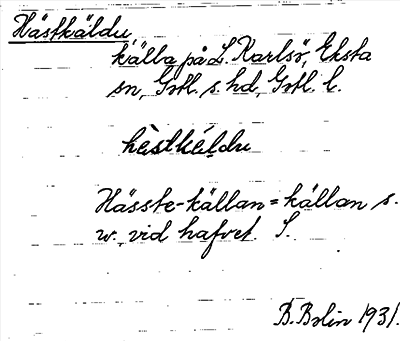 Hästkäldu,
källa på L. Karlsö, Eksta
sn, Gotl. s. hd, Gotl. l.
hèstkéldu
Hässte-källan = källan s.
w., vid hafvet. S.
B. Bolin 1931.